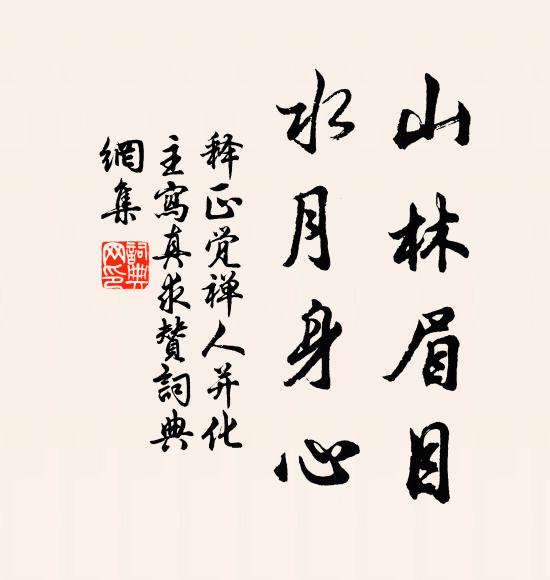 山林眉目
水月身心
释正觉禅人并化
主寫真求贊詞典
網集
詞典
网印